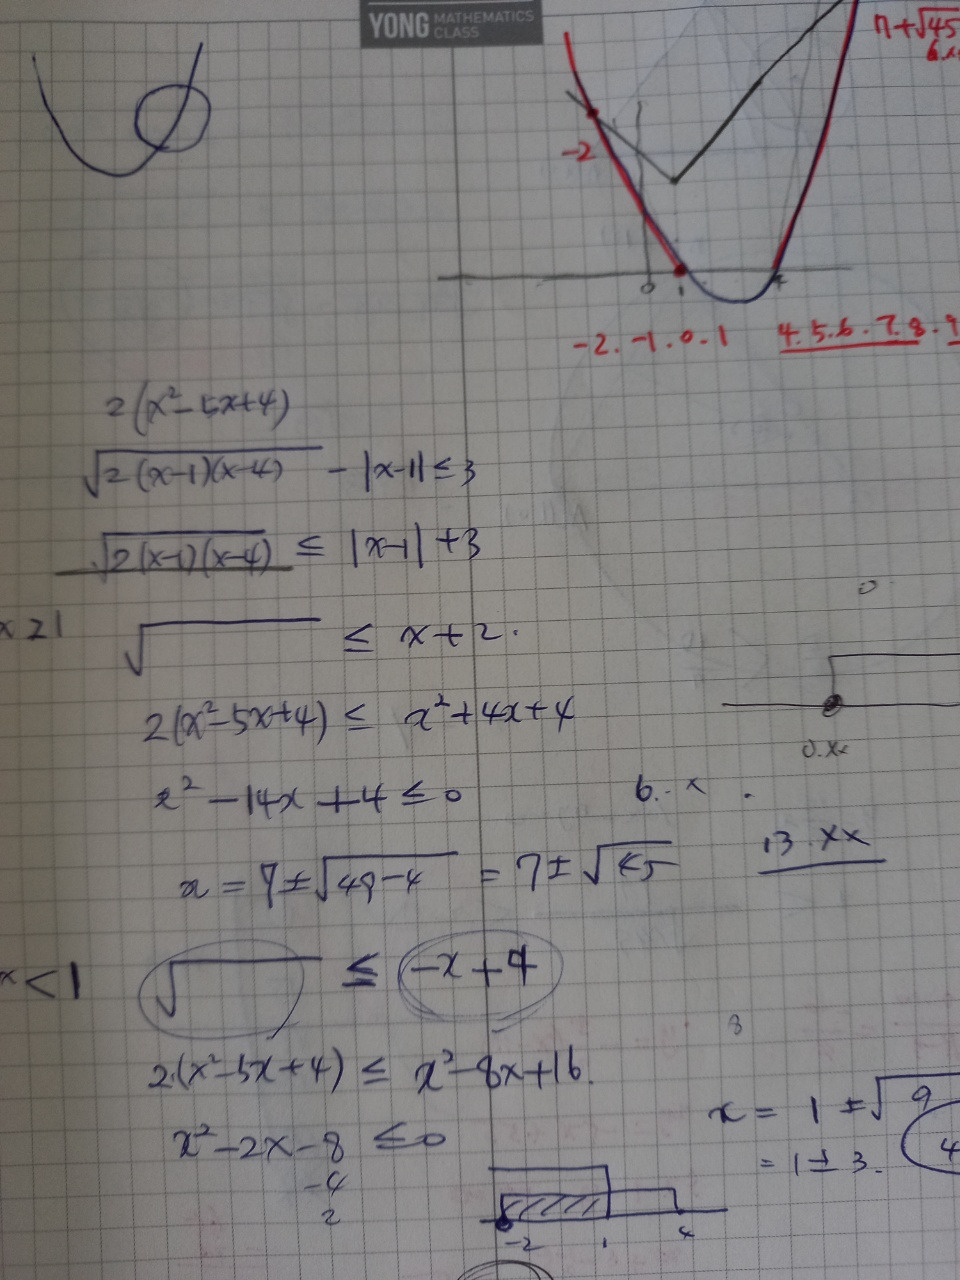 YONG MATHEMATICS CLASS
7+√45
-2
0 1 4
-2. -1. 0. 1 4. 5. 6. 7. 8. 9
2(x²-5x+4)
√2(x-1)(x-4) - |x-1| ≤ 3
√2(x-1)(x-4) ≤ |x-1| +3
x≥1 √ ≤ x+2.
2(x²-5x+4) ≤ x²+4x+4
0.xx
x² -14x +4 ≤0 6. x .
13.xx
x = 7±√49-4 = 7±√45
x<1 √ ≤ -x+4
8
2(x²-5x+4) ≤ x²-8x+16.
x = 1 ±√9
x²-2x-8 ≤0
= 1±3. 4
-4
2
-2 1 4